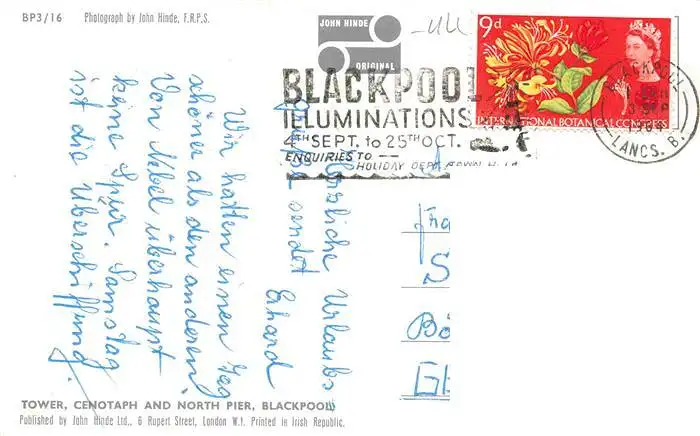 BP3/16 Photograph by John Hinde, F.R.P.S.
JOHN HINDE
ORIGINAL
9d
INTERNATIONAL BOTANICAL CONGRESS
BLACKPOOL
LANCS. B.
BLACKPOOL
ILLUMINATIONS
4TH SEPT. to 25TH OCT.
ENQUIRIES TO —
HOLIDAY DEPT.
Herzliche Urlaubs-
grüße sendet
Erhard
Wir hatten einen Tag
schöner als den anderen.
Von Nebel überhaupt
keine Spur. Samstag
ist die Überschiffung.
Fra
S
Bö
TOWER, CENOTAPH AND NORTH PIER, BLACKPOOL
Published by John Hinde Ltd., 6 Rupert Street, London W.1. Printed in Irish Republic.